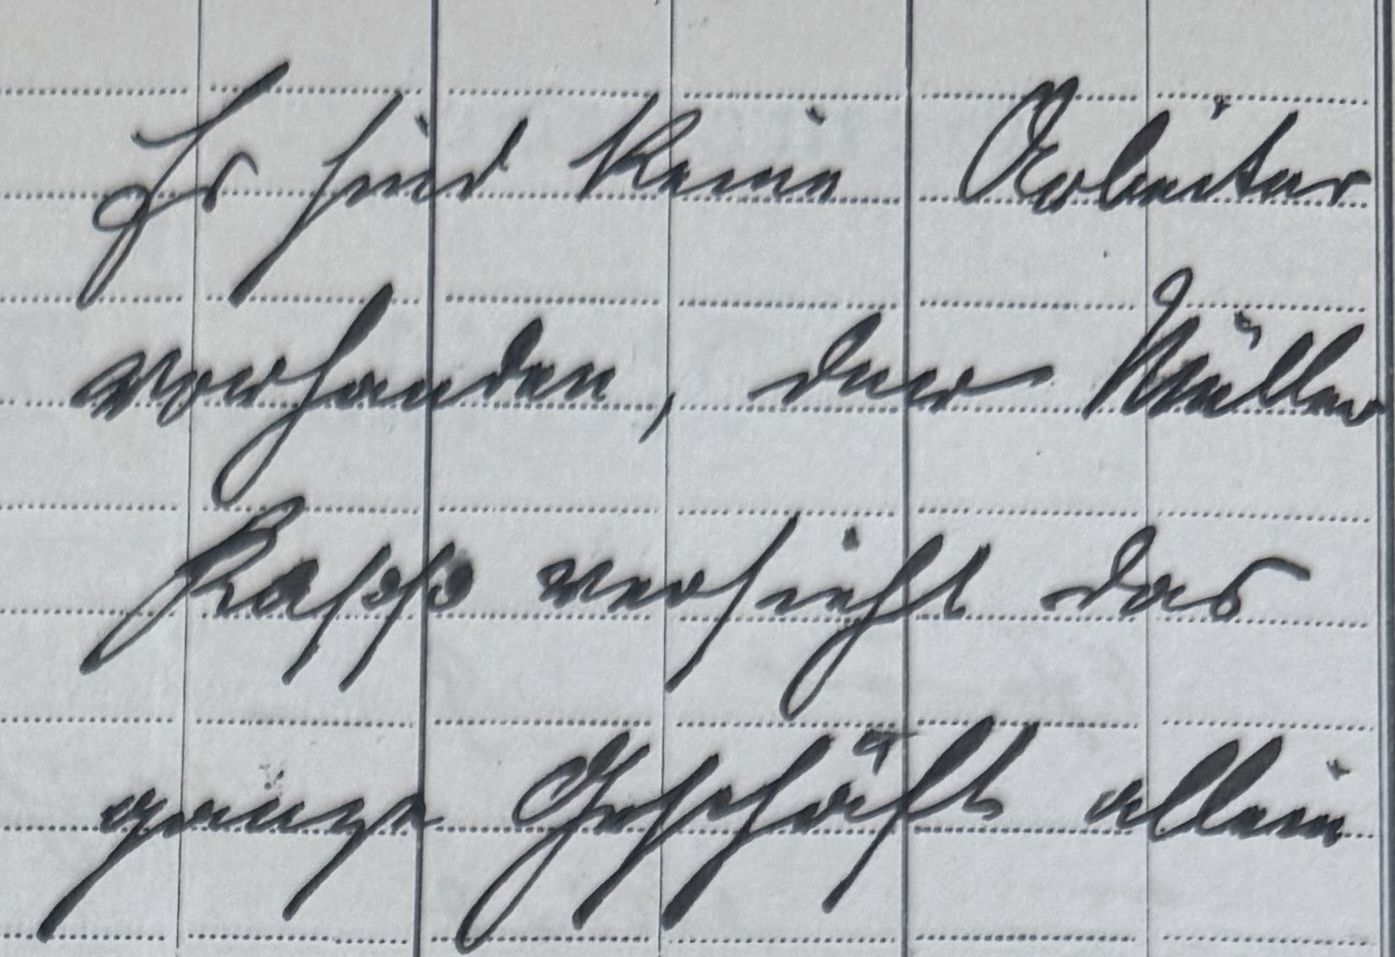 Es sind keine Arbeiter
vorhanden, der Müller
Rapp versieht das
ganze Geschäft allein